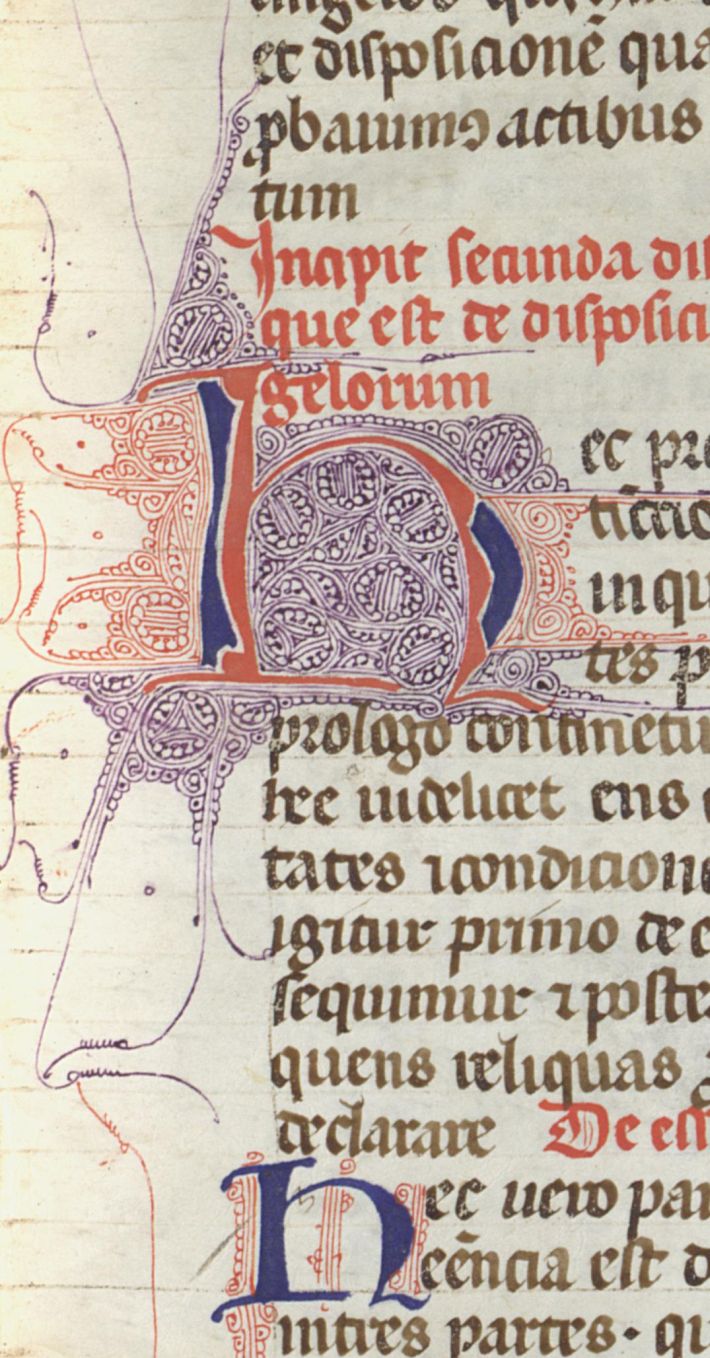 et disposicionē qua
ꝓbauimꝰ actibus
tum
Incipit secunda dis
que est de disposici
gelorum
hec pro
in qu
tes p
prologo continetu
hee uidelicet ens
tates ⁊condicione
igitur primo de e
sequimur ⁊ poste
quens reliquas
declarare De ess
hec uero par
eēncia est d
in tres partes · qu